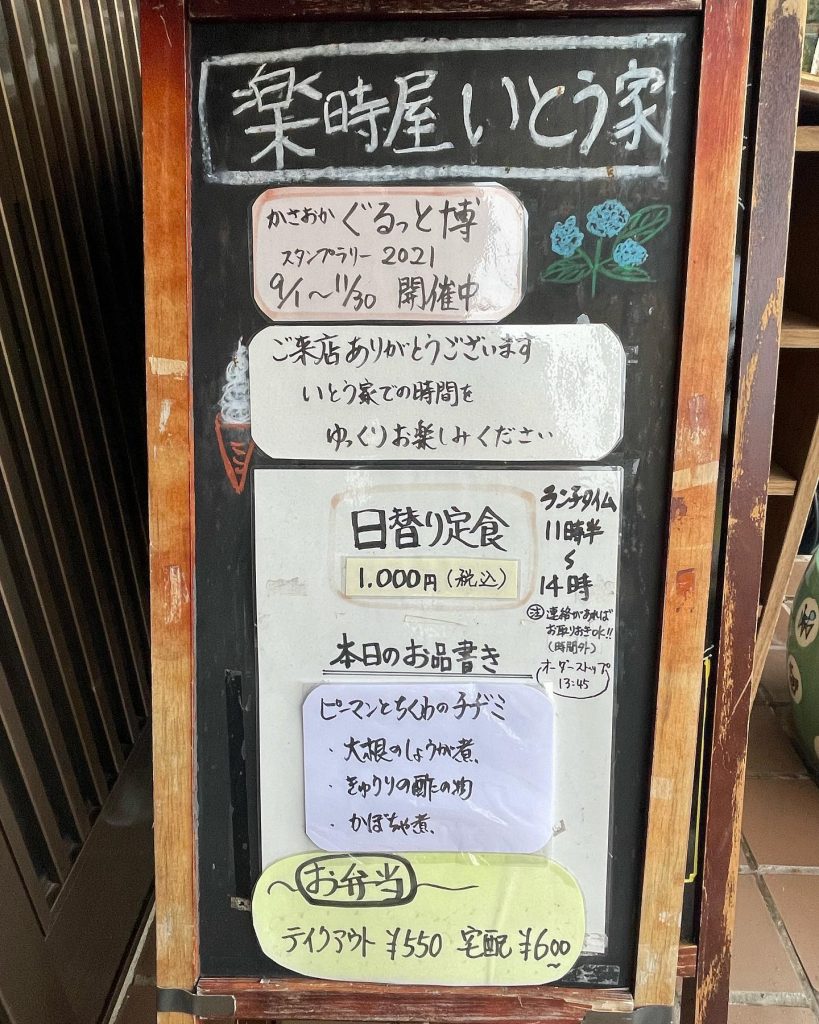 楽時屋いとう家
かさおか ぐるっと博
スタンプラリー 2021
9/1〜11/30 開催中
ご来店ありがとうございます
いとう家での時間を
ゆっくりお楽しみください
日替り定食
1.000円(税込)
ランチタイム
11時半
〜
14時
注 連絡があれば
お取りおきOK!!
(時間外)
オーダーストップ
13:45
本日のお品書き
ピーマンとちくわのチヂミ
・大根のしょうが煮、
・きゅうりの酢の物
・かぼちゃ煮、
〜お弁当〜
テイクアウト ¥550 宅配 ¥600〜